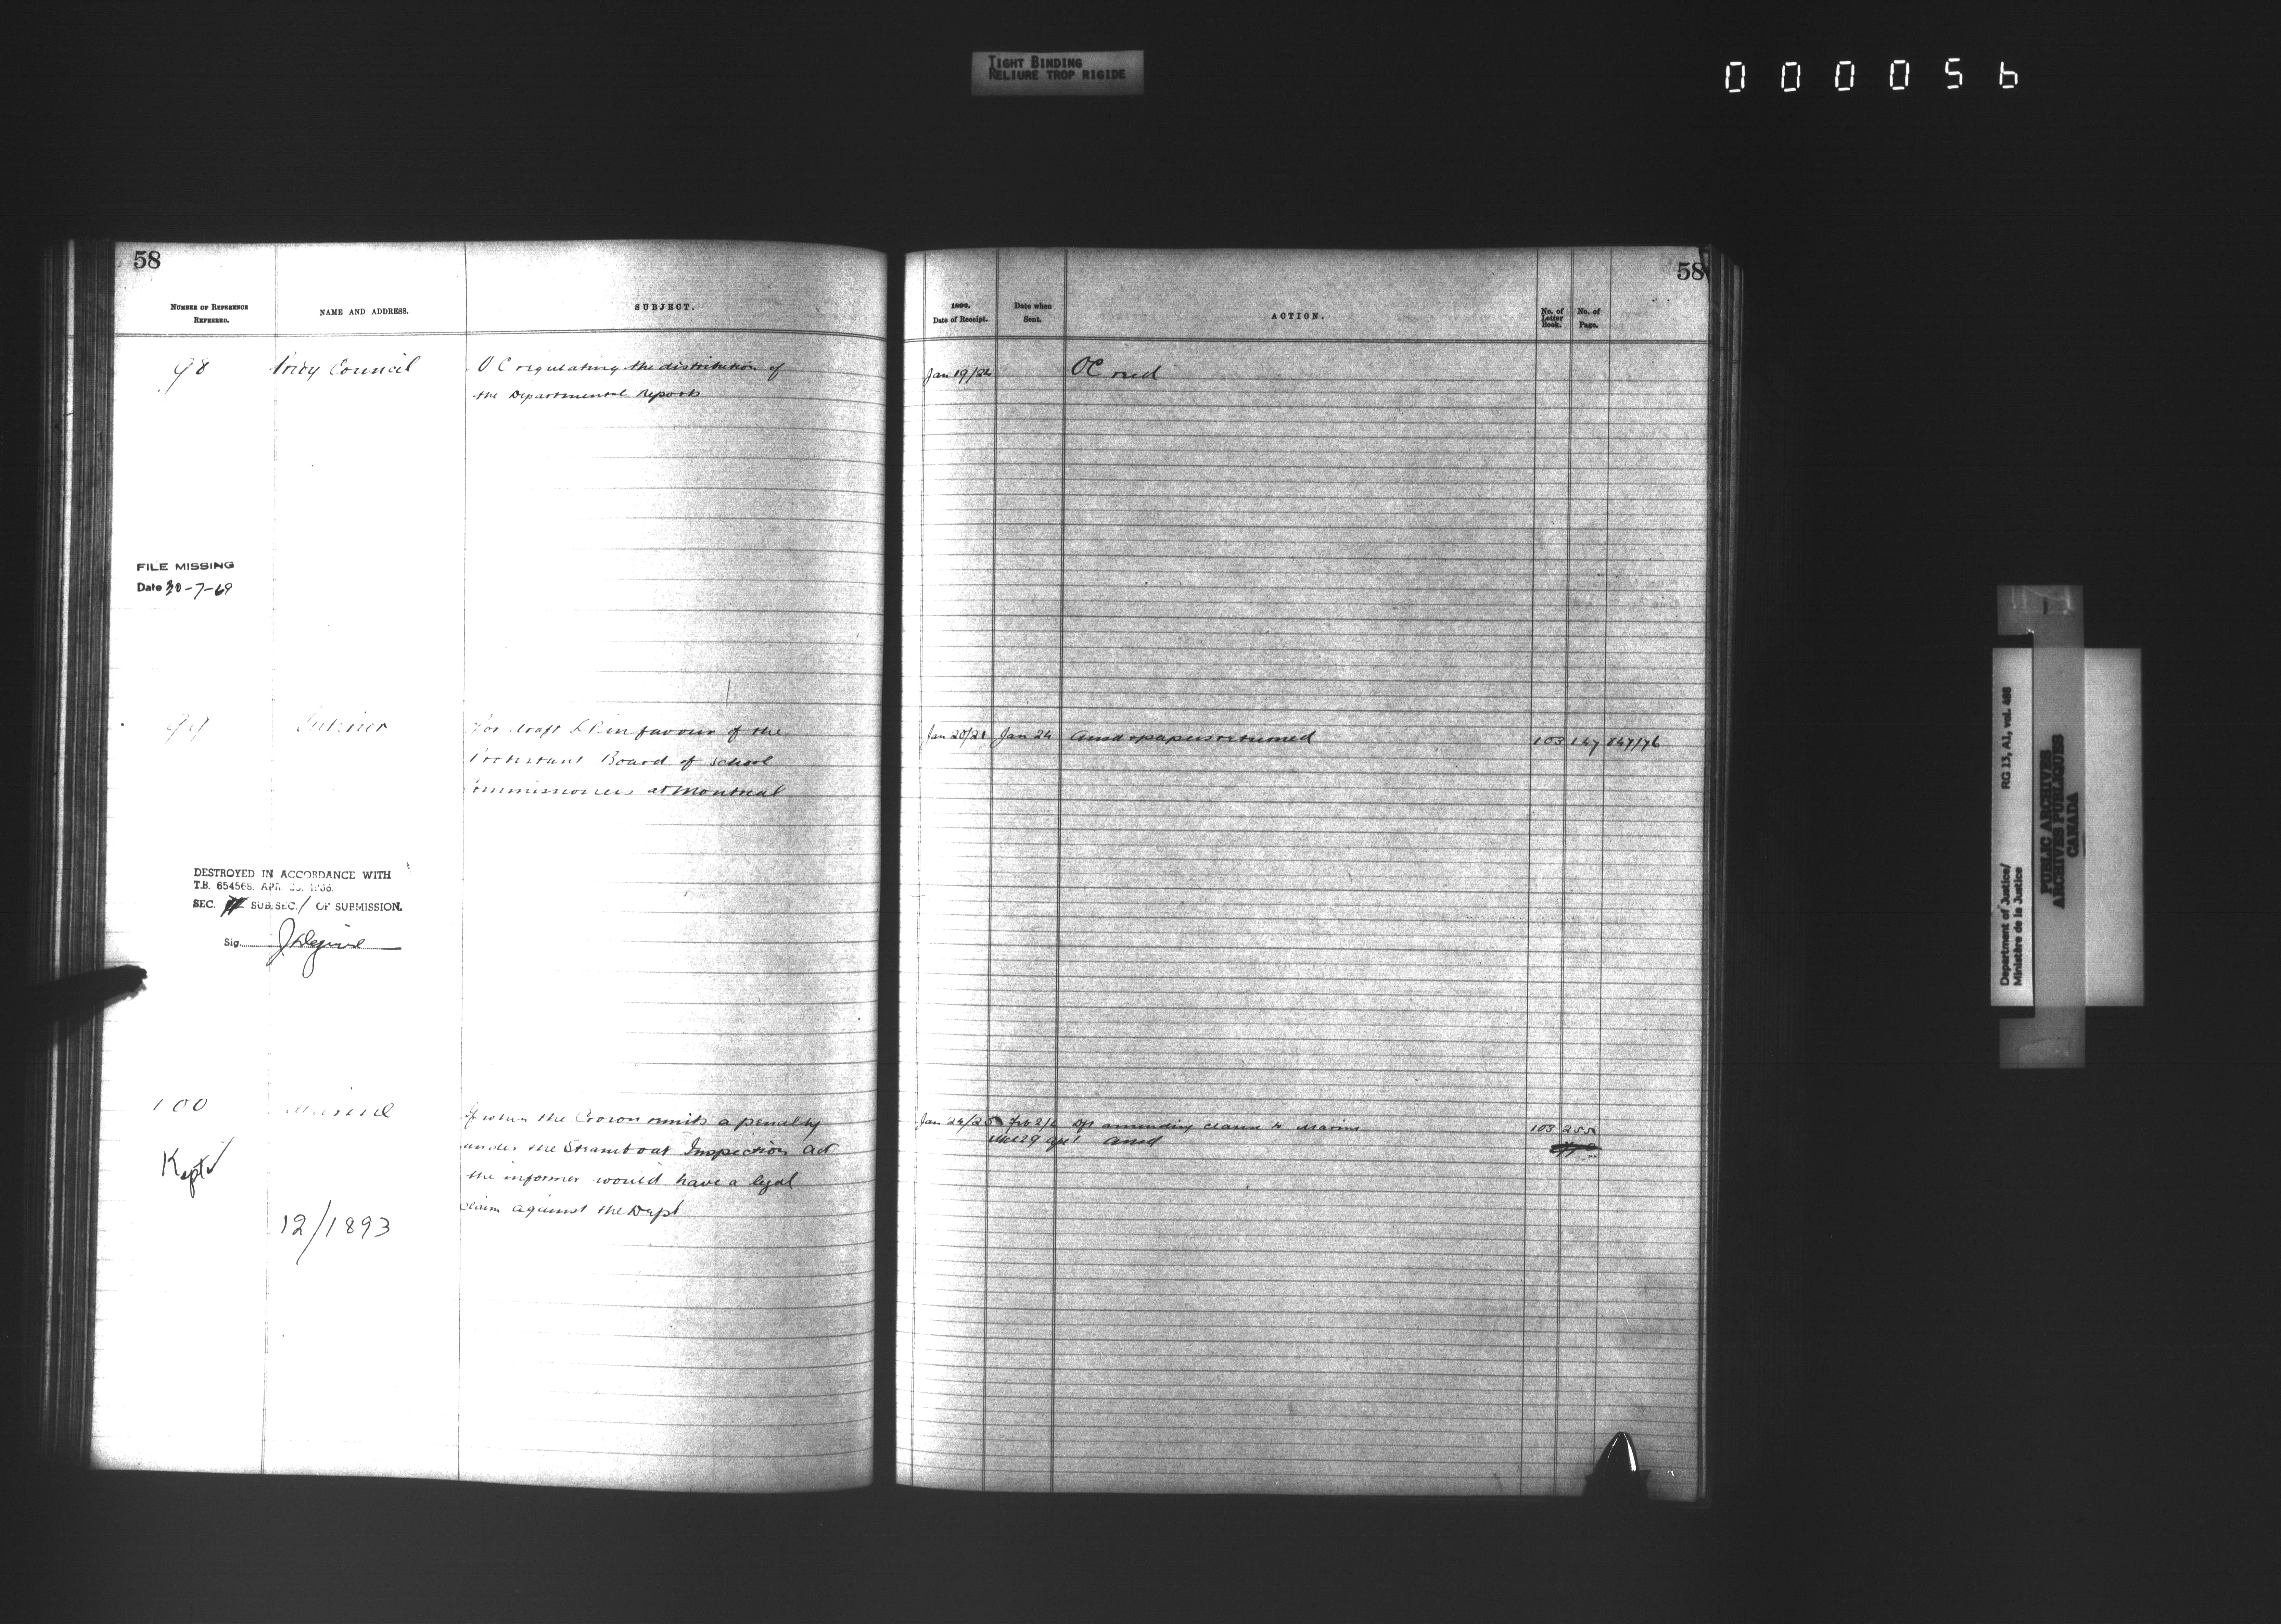 TIGHT BINDING
RELIURE TROP RIGIDE
000056
58
NUMBER OF REFERENCE
REFERRED.
NAME AND ADDRESS.
SUBJECT.
98
Privy Council
O C regulating the distribution of
the Departmental Reports
FILE MISSING
Date 30-7-69
99
Interior
For draft L P in favour of the
Protestant Board of School
Commissioners at Montreal
DESTROYED IN ACCORDANCE WITH
T.B. 654568. APR.
SEC. SUB.SEC. 1 OF SUBMISSION.
Sig.
100
Marine
Kept
12/1893
If when the Crown remits a penalty
under the Steamboat Inspection Act
the informer would have a legal
claim against the Dept
58
Date of Receipt.
Date when
Sent.
ACTION.
No. of
Letter
Book.
No. of
Page.
Jan 19/22
OC recd
Jan 20/21 Jan 24 ansd & papers returned 103 147
Jan 24/25 Feb 2/ Dft amending clause to Marine 103 255
ansd
Department of Justice/
Ministère de la Justice
RG 13, A1, vol. 488
PUBLIC ARCHIVES
ARCHIVES PUBLIQUES
CANADA